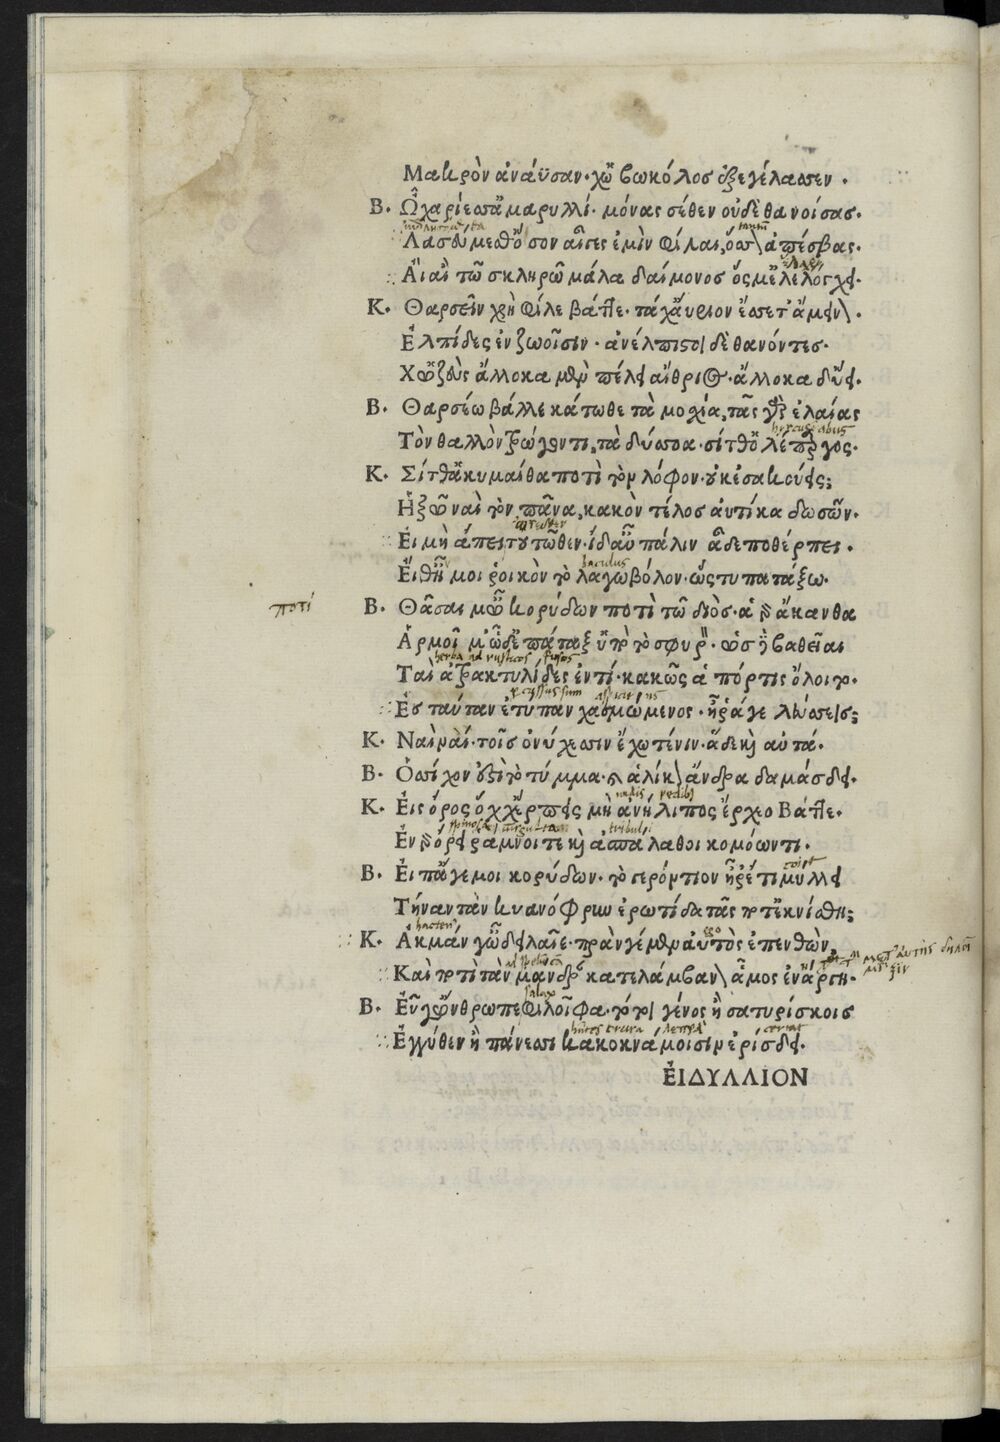 Μακρὸν ἀνάϋσαν· χὢ βωκόλος ἐξεγέλασσεν.
Β. Ὦ χαρίεσσ' ἀμαρυλλί· μόνας σέθεν οὐδὲ θανοίσας
Λασούμεσθ'· ὅσον αἶγες ἐμὶν φίλαι, ὅσσον ἀπέσβας.
Αἲ αἲ τῶ σκληρῶ μάλα δαίμονος ὅς με λελόγχει.
Κ. Θαρσεῖν χρὴ φίλε βάττε· τάχ' αὔριον ἔσσετ' ἄμεινον.
Ἐλπίδες ἐν ζωοῖσιν· ἀνέλπιστοι δὲ θανόντες.
Χὢ ζεὺς ἄλλοκα μὲν πέλει αἴθριος· ἄλλοκα δ' ὕει.
Β. Θαρσέω βάλλε κάτωθε τὰ μοσχία, τᾶς γὰρ ἐλαίας
hyrcus albus
Τὸν θαλλὸν τρώγοντι, τὰ δύσσοα· σίτθ' ὁ λέπαργος.
Κ. Σίτθ' ἁ κυμαίθα ποτὶ τὸν λόφον· οὐκ ἐσακούεις;
Ἡξῶ ναὶ τὸν πᾶνα, κακὸν τέλος αὐτίκα δωσῶν.
Εἰ μὴ ἄπει τουτῶθεν· ἴδ' αὖ πάλιν ἅδε ποθέρπει.
baculus
Εἴθ' ἦν μοι ῥοικὸν τὸ λαγωβόλον· ὥς τυ πατάξω.
ποτί
Β. Θᾶσαι μ' ὦ κορύδων ποτὶ τῶ διὸς· ἁ γὰρ ἄκανθα
Ἁρμοῖ μ' ὧδ' ἐπάταξ' ὑπὸ τὸ σφυρόν· ὡς ἢ βαθεῖαι
herba ad rusticos fusos
Ταὶ ἀτρακτυλίδες ἐντί· κακῶς ἁ πόρτις ὄλοιτο.
percussus sum
Ἐς ταύταν ἐτύπαν χασμώμενος· ἦ ῥά γε λεύσσεις;
Κ. Ναὶ ναί· τοῖς ὀνύχεσσιν ἔχω τένιν· ἅδε καὶ αὐτά.
Β. Ὁσσίχον ἐστὶ τὸ τύμμα· καὶ ἁλίκον ἄνδρα δαμάσδει.
Κ. Εἰς ὄρος ὅκχ' ἕρπεις μὴ ἀνήλιπος ἔρχεο Βάττε.
tribuli
Ἐν γὰρ ὄρει ῥάμνοι τε καὶ ἀσπάλαθοι κομόωντι.
coit
Β. Εἴπ' ἄγε μοι κορύδων· τὸ γερόντιον ἦ ῥ' ἔτι μύλλει
Τήναν τὰν κυανόφρυν ἐρωτίδα τᾶς ποτ' ἐκνίσθη;
Κ. Ἀκμάν γ' ὦ δείλαιε· πρὰν γε μὲν αὐτὸς ἐπενθὼν,
Καὶ ποτὶ τὰν μάνδραν κατελάμβανον ἇμος ἐνάργει.
salax
Β. Εὖ γ' ὤνθρωπε φιλοῖφα· τό τοι γένος ἢ σατυρίσκοις
Ἐγγύθεν ἢ πάνεσσι κακοκνάμοισιν ἐρίσδει.
ἘΙΔΥΛΛΙΟΝ